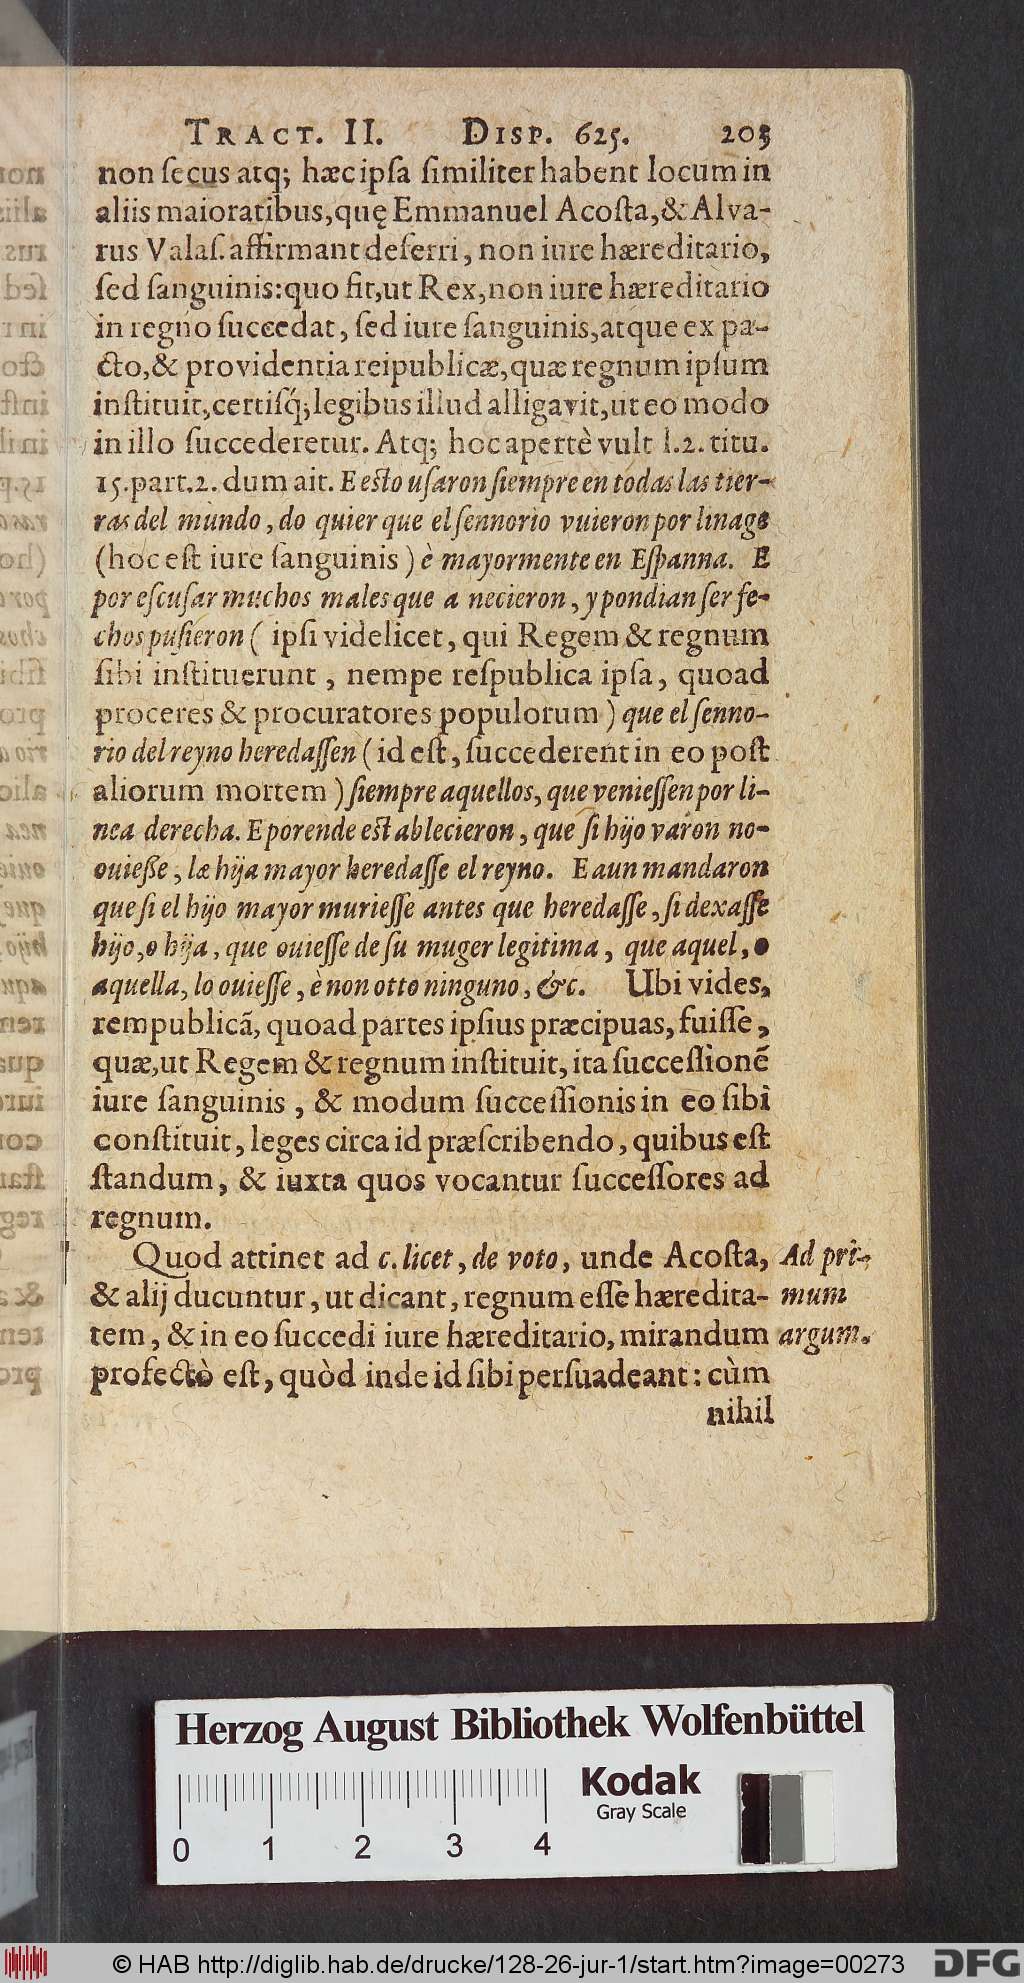 TRACT. II. DISP. 625. 203
non ſecus atq; hæc ipſa ſimiliter habent locum in
aliis maioratibus, quę Emmanuel Acoſta, & Alva-
rus Valaſ. affirmant deferri, non iure hæreditario,
ſed ſanguinis: quo fit, ut Rex, non iure hæreditario
in regno ſuccedat, ſed iure ſanguinis, atque ex pa-
cto, & providentia reipublicæ, quæ regnum ipſum
inſtituit, certiſq́; legibus illud alligavit, ut eo modo
in illo ſuccederetur. Atq; hoc apertè vult l. 2. titu.
15. part. 2. dum ait. E eſto uſaron ſiempre en todas las tier-
ras del mundo, do quier que el ſennorio vuieron por linage
(hoc eſt iure ſanguinis) è mayormente en Eſpanna. E
por eſcuſar muchos males que a necieron, y pondian ſer fe-
chos puſieron ( ipſi videlicet, qui Regem & regnum
ſibi inſtituerunt, nempe reſpublica ipſa, quoad
proceres & procuratores populorum ) que el ſenno-
rio del reyno heredaſſen ( id eſt, ſuccederent in eo poſt
aliorum mortem ) ſiempre aquellos, que venieſſen por li-
nea derecha. E porende eſtablecieron, que ſi hijo varon no-
ouieße, læ hija mayor heredaſſe el reyno. E aun mandaron
que ſi el hijo mayor murieſſe antes que heredaſſe, ſi dexaſſe
hijo, o hija, que ouieſſe de ſu muger legitima, que aquel, o
aquella, lo ouieſſe, è non otto ninguno, &c. Ubi vides,
rempublicã, quoad partes ipſius præcipuas, fuiſſe,
quæ, ut Regem & regnum inſtituit, ita ſucceſſionẽ
iure ſanguinis, & modum ſucceſſionis in eo ſibi
conſtituit, leges circa id præſcribendo, quibus eſt
ſtandum, & iuxta quos vocantur ſucceſſores ad
regnum.
Quod attinet ad c. licet, de voto, unde Acoſta, Ad pri-
& alij ducuntur, ut dicant, regnum eſſe hæredita- mum
tem, & in eo ſuccedi iure hæreditario, mirandum argum.
profectò eſt, quòd inde id ſibi perſuadeant: cùm
nihil
Herzog August Bibliothek Wolfenbüttel
Kodak
Gray Scale
0 1 2 3 4
© HAB http://diglib.hab.de/drucke/128-26-jur-1/start.htm?image=00273
DFG